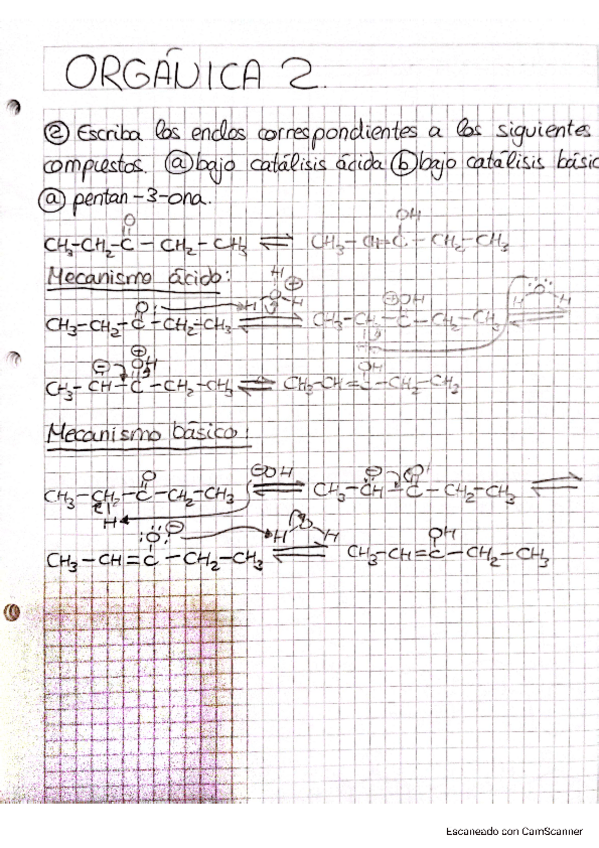 ORGÁNICA 2.
② Escriba los enoles correspondientes a los siguientes
compuestos. ⓐ bajo catálisis ácida ⓑ bajo catálisis básic
ⓐ pentan-3-ona.
O OH
CH₃-CH₂-C-CH₂-CH₃ ⇌ CH₃-CH=C-CH₂-CH₃
Mecanismo ácido:
H ⊕
O H O H ⊕OH H O H
CH₃-CH₂-C-CH₂-CH₃ ⇌ CH₃-CH-C-CH₂-CH₃ ⇌
H
⊖ ⊕OH OH
CH₃-CH-C-CH₂-CH₃ ⇌ CH₃-CH=C-CH₂-CH₃
Mecanismo básico:
O ⊖OH ⊖ O
CH₃-CH₂-C-CH₂-CH₃ ⇌ CH₃-CH-C-CH₂-CH₃ ⇌
H
:O: ⊖ H O H OH
CH₃-CH=C-CH₂-CH₃ ⇌ CH₃-CH=C-CH₂-CH₃
Escaneado con CamScanner